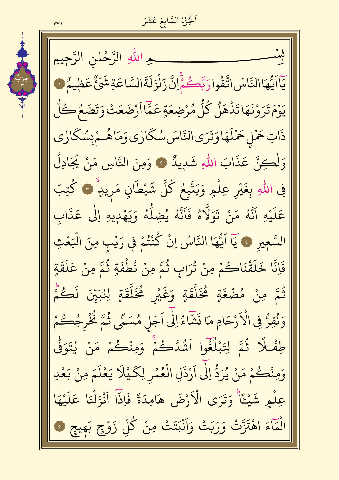 اَلْجُزْءُ السَّابِعَ عَشَرَ
بِسْمِ اللهِ الرَّحْمٰنِ الرَّحِيمِ
يَٓا اَيُّهَا النَّاسُ اتَّقُوا رَبَّكُمْۚ اِنَّ زَلْزَلَةَ السَّاعَةِ شَيْءٌ عَظِيمٌ
يَوْمَ تَرَوْنَهَا تَذْهَلُ كُلُّ مُرْضِعَةٍ عَمَّٓا اَرْضَعَتْ وَتَضَعُ كُلُّ
ذَاتِ حَمْلٍ حَمْلَهَا وَتَرَى النَّاسَ سُكَارٰى وَمَا هُمْ بِسُكَارٰى
وَلٰكِنَّ عَذَابَ اللهِ شَدِيدٌ وَمِنَ النَّاسِ مَنْ يُجَادِلُ
فِي اللهِ بِغَيْرِ عِلْمٍ وَيَتَّبِعُ كُلَّ شَيْطَانٍ مَرِيدٍۙ كُتِبَ
عَلَيْهِ اَنَّهُ مَنْ تَوَلَّاهُ فَاَنَّهُ يُضِلُّهُ وَيَهْدِيهِ اِلٰى عَذَابِ
السَّعِيرِ يَٓا اَيُّهَا النَّاسُ اِنْ كُنْتُمْ فِي رَيْبٍ مِنَ الْبَعْثِ
فَاِنَّا خَلَقْنَاكُمْ مِنْ تُرَابٍ ثُمَّ مِنْ نُطْفَةٍ ثُمَّ مِنْ عَلَقَةٍ
ثُمَّ مِنْ مُضْغَةٍ مُخَلَّقَةٍ وَغَيْرِ مُخَلَّقَةٍ لِنُبَيِّنَ لَكُمْۜ
وَنُقِرُّ فِي الْاَرْحَامِ مَا نَشَٓاءُ اِلٰٓى اَجَلٍ مُسَمًّى ثُمَّ نُخْرِجُكُمْ
طِفْلًا ثُمَّ لِتَبْلُغُٓوا اَشُدَّكُمْۚ وَمِنْكُمْ مَنْ يُتَوَفّٰى
وَمِنْكُمْ مَنْ يُرَدُّ اِلٰٓى اَرْذَلِ الْعُمُرِ لِكَيْلَا يَعْلَمَ مِنْ بَعْدِ
عِلْمٍ شَيْئًاۜ وَتَرَى الْاَرْضَ هَامِدَةً فَاِذَٓا اَنْزَلْنَا عَلَيْهَا
الْمَٓاءَ اهْتَزَّتْ وَرَبَتْ وَاَنْبَتَتْ مِنْ كُلِّ زَوْجٍ بَهِيجٍ